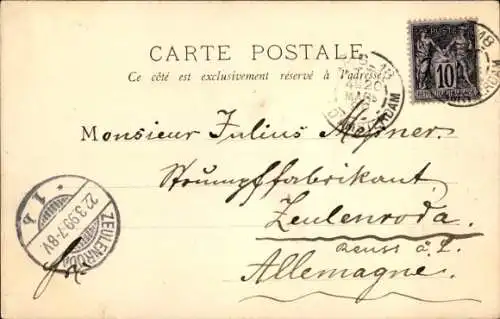 CARTE POSTALE
Ce côté est exclusivement réservé à l'adresse
POSTE
10
18
18
Monsieur Julius
Strumpffabrikant
Zeulenroda.
Reuss ä. L.
Allemagne.
ZEULENRODA
22.3.99.7-8V.